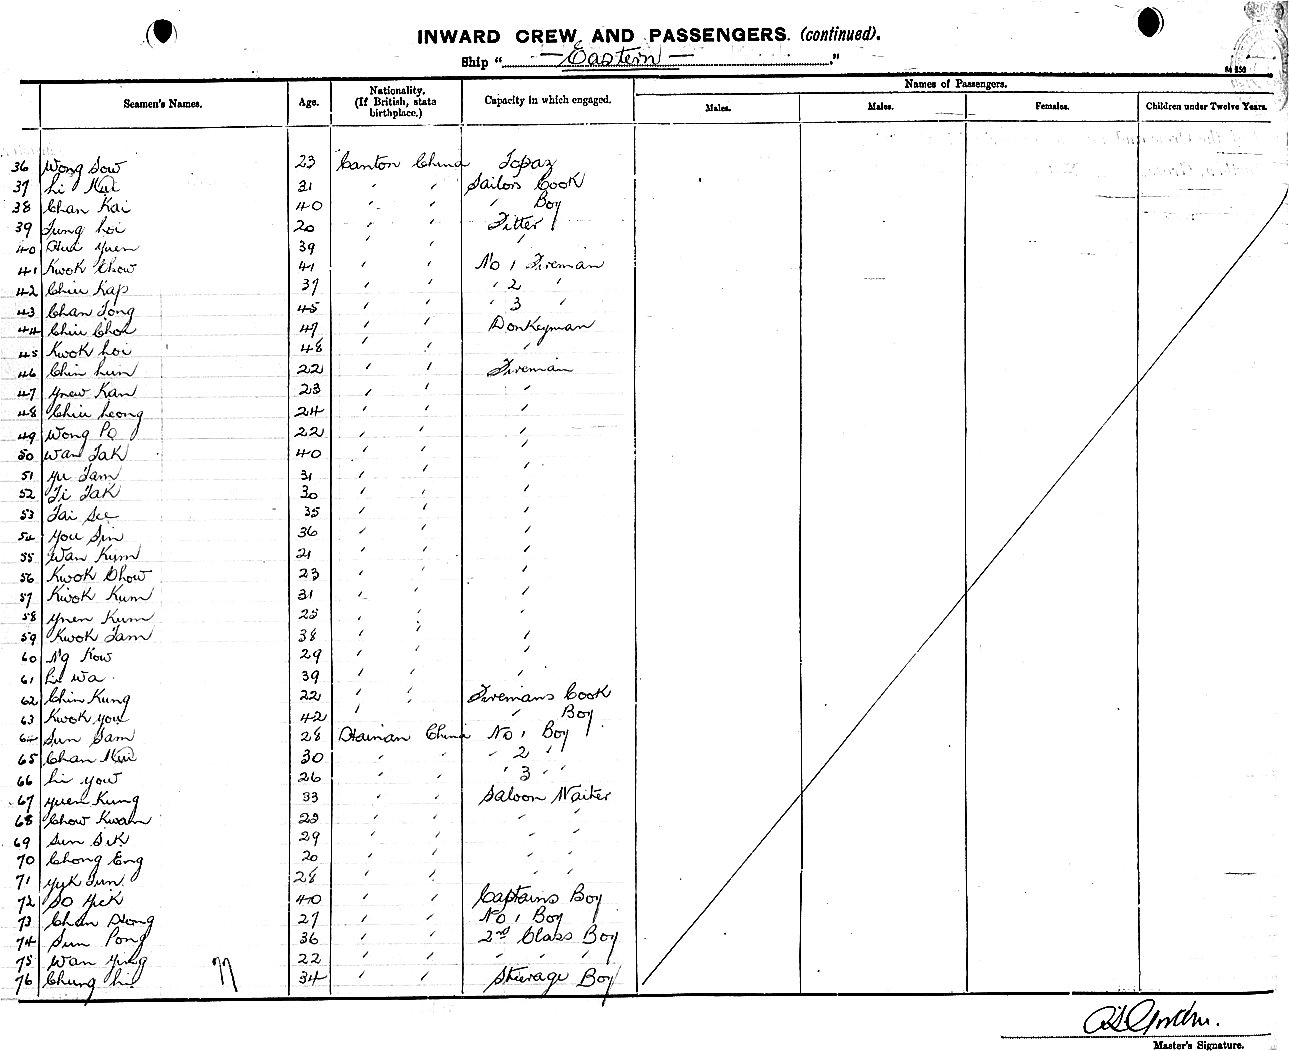 INWARD CREW AND PASSENGERS. (continued).
Ship " Eastern "
Seamen's Names. Age. Nationality. (If British, state birthplace.) Capacity in which engaged. Names of Passengers.
Males. Males. Females. Children under Twelve Years.
36 Wong Sow 23 Canton China Topaz
37 Li 31 " " Sailors Cook
38 Chan Kai 40 " " " Boy
39 Tung Loi 20 " " Fitter
40 Yuen 39 " " "
41 Kwok Chow 41 " " No 1 Fireman
42 Chiu Kap 37 " " " 2 "
43 Chan Tong 45 " " " 3 "
44 Chiu Choi 47 " " Donkeyman
45 Kwok Loi 48 " " "
46 Chin Lun 22 " " Fireman
47 Ynew Kan 23 " " "
48 Chiu Leong 24 " " "
49 Wong Po 22 " " "
50 Wan Tak 40 " " "
51 Yu Tam 31 " " "
52 Ti Tak 30 " " "
53 Tai See 35 " " "
54 You Sin 36 " " "
55 Wan Kum 21 " " "
56 Kwok Chow 23 " " "
57 Kwok Kum 31 " " "
58 Ynen Kum 25 " " "
59 Kwok Tam 38 " " "
60 Ng Kow 29 " " "
61 Li Wa 39 " " "
62 Chin Kung 22 " " Firemans Cook
63 Kwok You 42 " " " Boy
64 Sun Sam 28 Hainan China No 1 Boy
65 Chan 30 " " " 2 "
66 Li You 26 " " " 3 " "
67 Yuen Kung 33 " " Saloon Waiter
68 Chow Kwan 23 " " " "
69 Sun Sik 29 " " " "
70 Chong Eng 20 " " " "
71 Yuk Tun 28 " " " "
72 So Yick 40 " " Captains Boy
73 Chan Hong 27 " " No 1 Boy
74 Sun Pong 36 " " 2nd Class Boy
75 Wan Yung 22 " " " " "
76 Chung Li 77 34 " " Steerage Boy
Master's Signature.